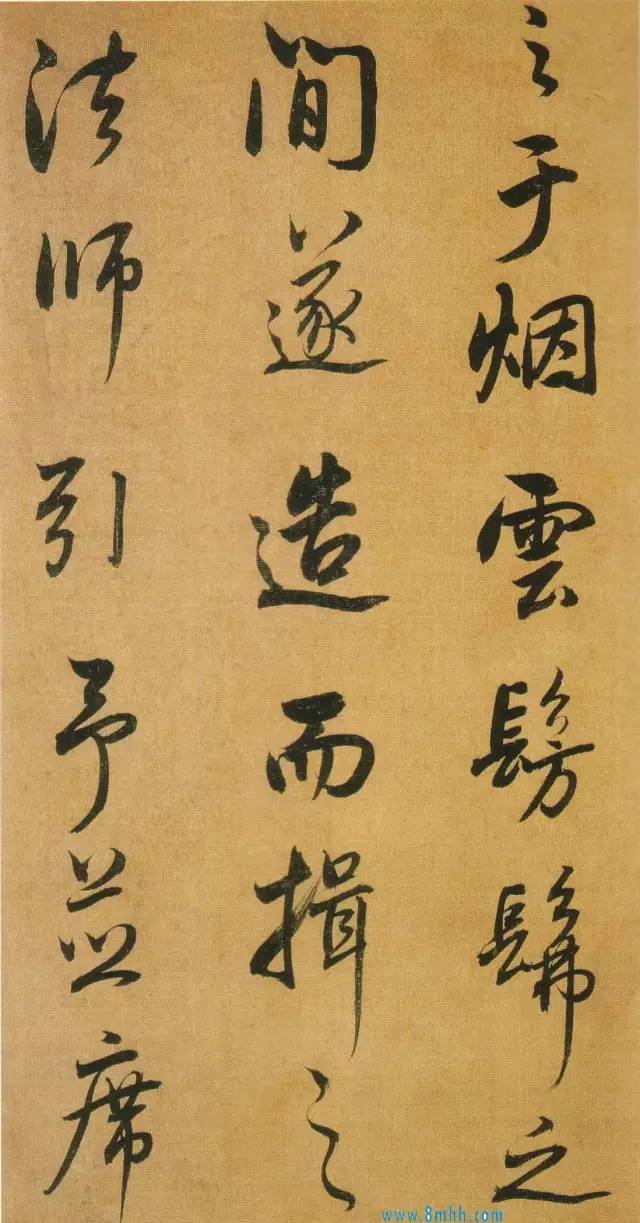 之于烟雲髣髴之
間遂造而揖之
法師引予並席
www.8mhh.com